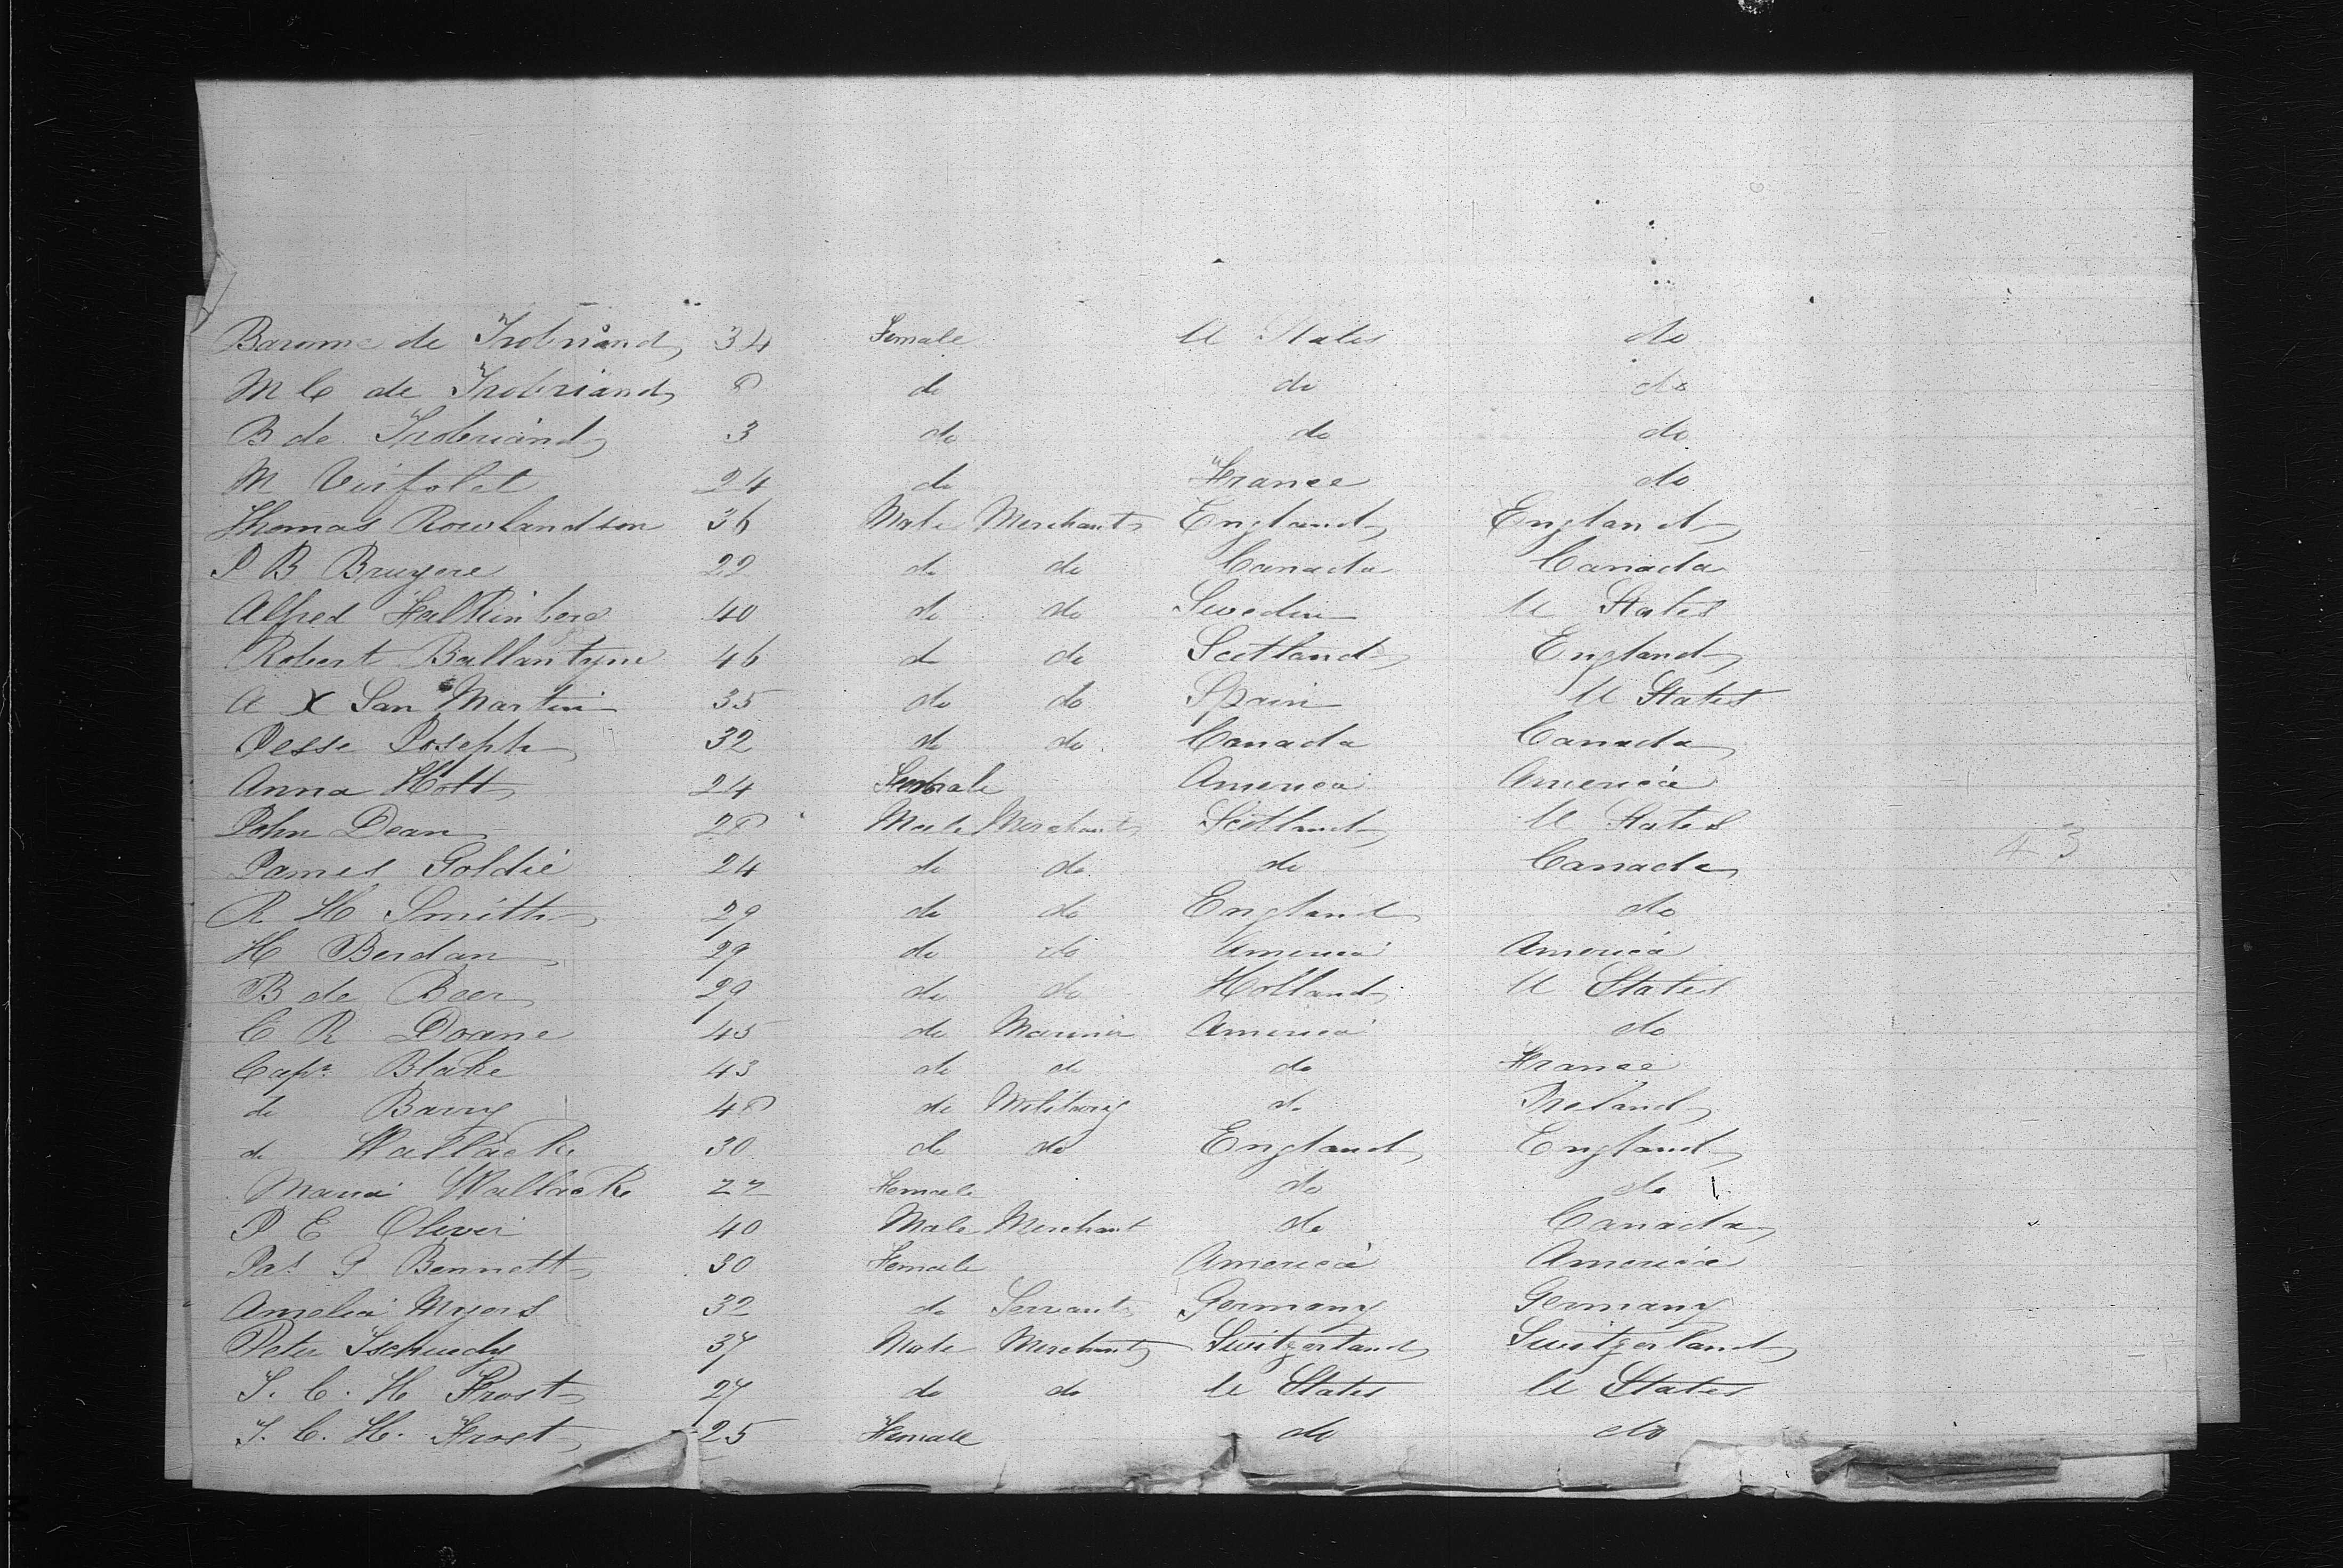 Baronne de Trobriand 34 Female U States do
M C de Trobriand 8 do do do
B de Trobriand 3 do do do
M 24 do France do
Thomas Rowlandson 36 Male Merchant England England
J B Bruyere 22 do do Canada Canada
Alfred Falkinberg 40 do do Sweden U States
Robert Ballantyne 46 do do Scotland England
A X San Martin 35 do do Spain U States
Jesse Joseph 32 do do Canada Canada
Anna Hott 24 Female America America
John Dean 28 Male Merchant Scotland U States
James Goldie 24 do do do Canada
43
R H Smith 29 do do England do
H Berdan 29 do do America America
B de Boer 29 do do Holland U States
C R Doane 45 do Mariner America do
Capn Blake 43 do do do France
do Barry 48 do Military do Ireland
do Wallack 30 do do England England
Maria Wallack 22 Female do do
J E Oliver 40 Male Merchant do Canada
Jas G Bennett 30 Female America America
Amelia Myers 32 do Servant Germany Germany
Peter Tschudy 37 Male Merchant Switzerland Switzerland
S. C. H Frost 27 do do U States U States
S. C. H. Frost 25 Female do do